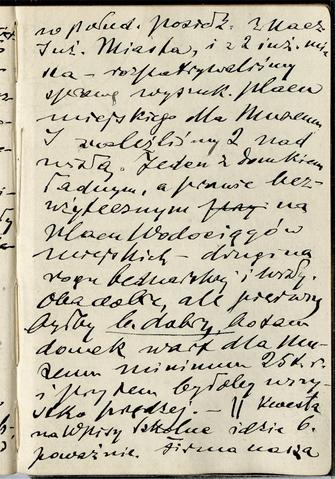 w połud. posiedz. z Nacz.
Inż. Miasta, i z 2 inż. mia
na – rozpatrywaliśmy
sprawę wyszuk. placu
miejskiego dla Muzeum
I znaleźliśmy 2 nad
wisłą. Jeden z domkiem
ładnym, a prawie bez-
użytecznym na
placu Wodociągów
miejskich – drugi na
rogu bednarskiej i wisły.
Oba dobre, ale pierwszy
byłby b. dobry, bo tam
domek wart dla Mu-
zeum minimum 25 t. r.
i przytem byłoby wszy-
stko prędzej. – II Kwesta
na Wpisy szkolne idzie b.
poważnie. Firma nasza